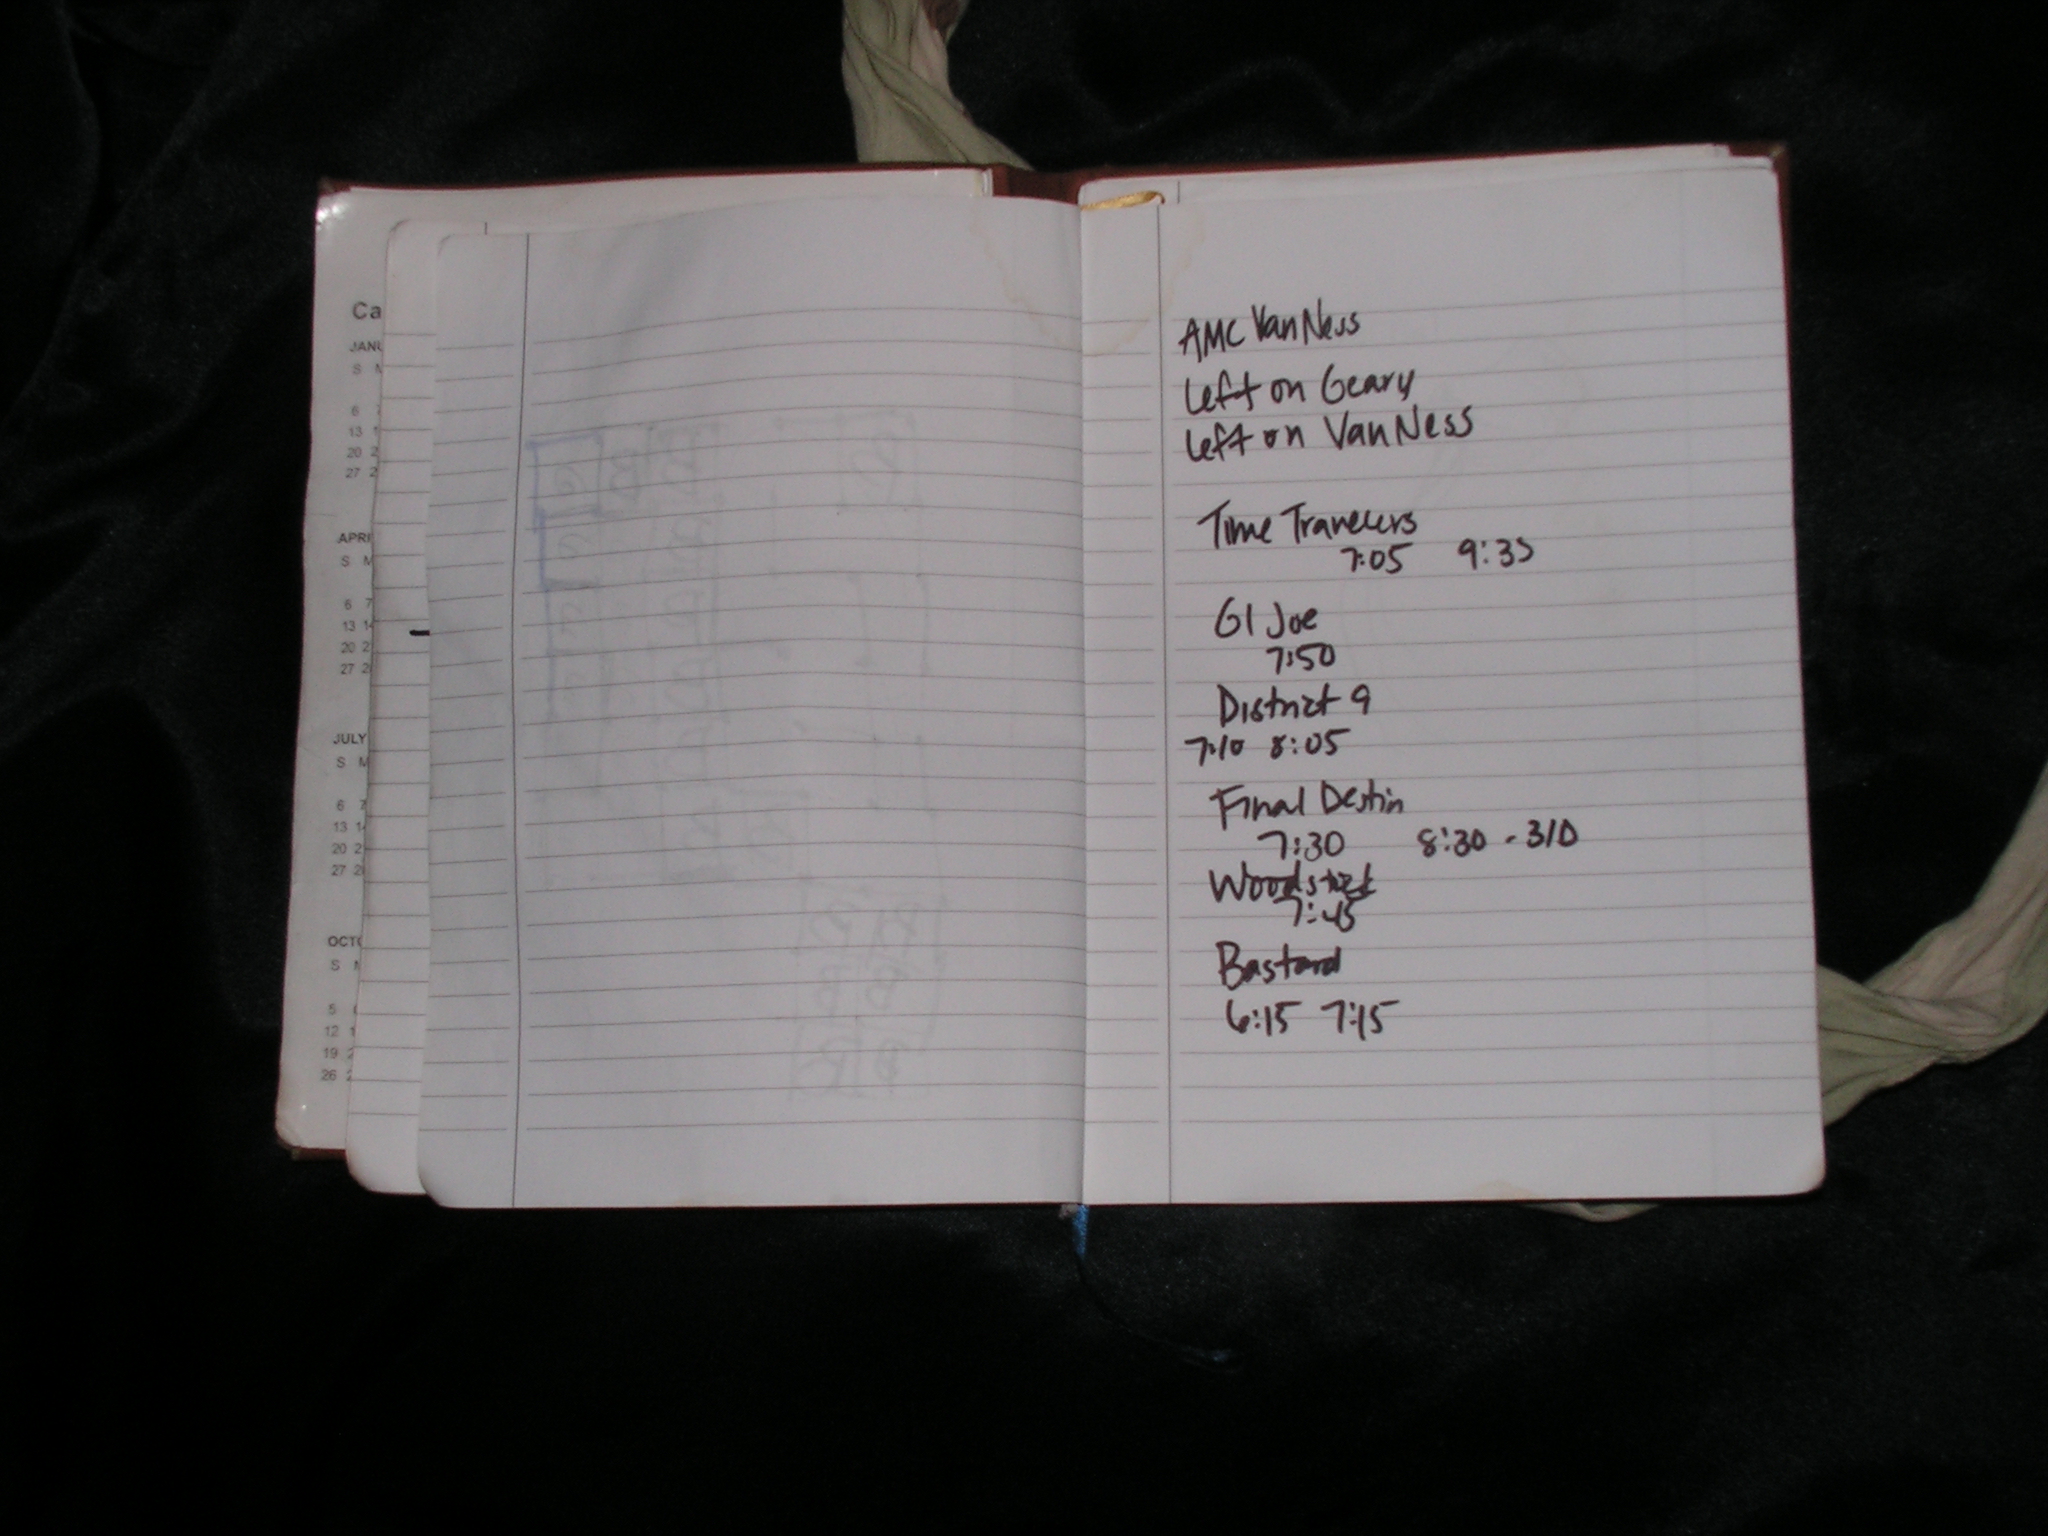 Ca
JANU
S M
6 7
13 1
20 2
27 2
APRI
S M
6 7
13 14
20 2
27 2
JULY
S M
6 7
13 14
20 2
27 2
OCTO
S M
5 6
12 1
19 2
26 2
AMC Van Ness
Left on Geary
Left on Van Ness
Time Travelers
7:05 9:35
GI Joe
7:50
District 9
7:10 8:05
Final Destin
7:30 8:30 - 3/D
Woodstock
7:45
Bastard
6:15 7:15